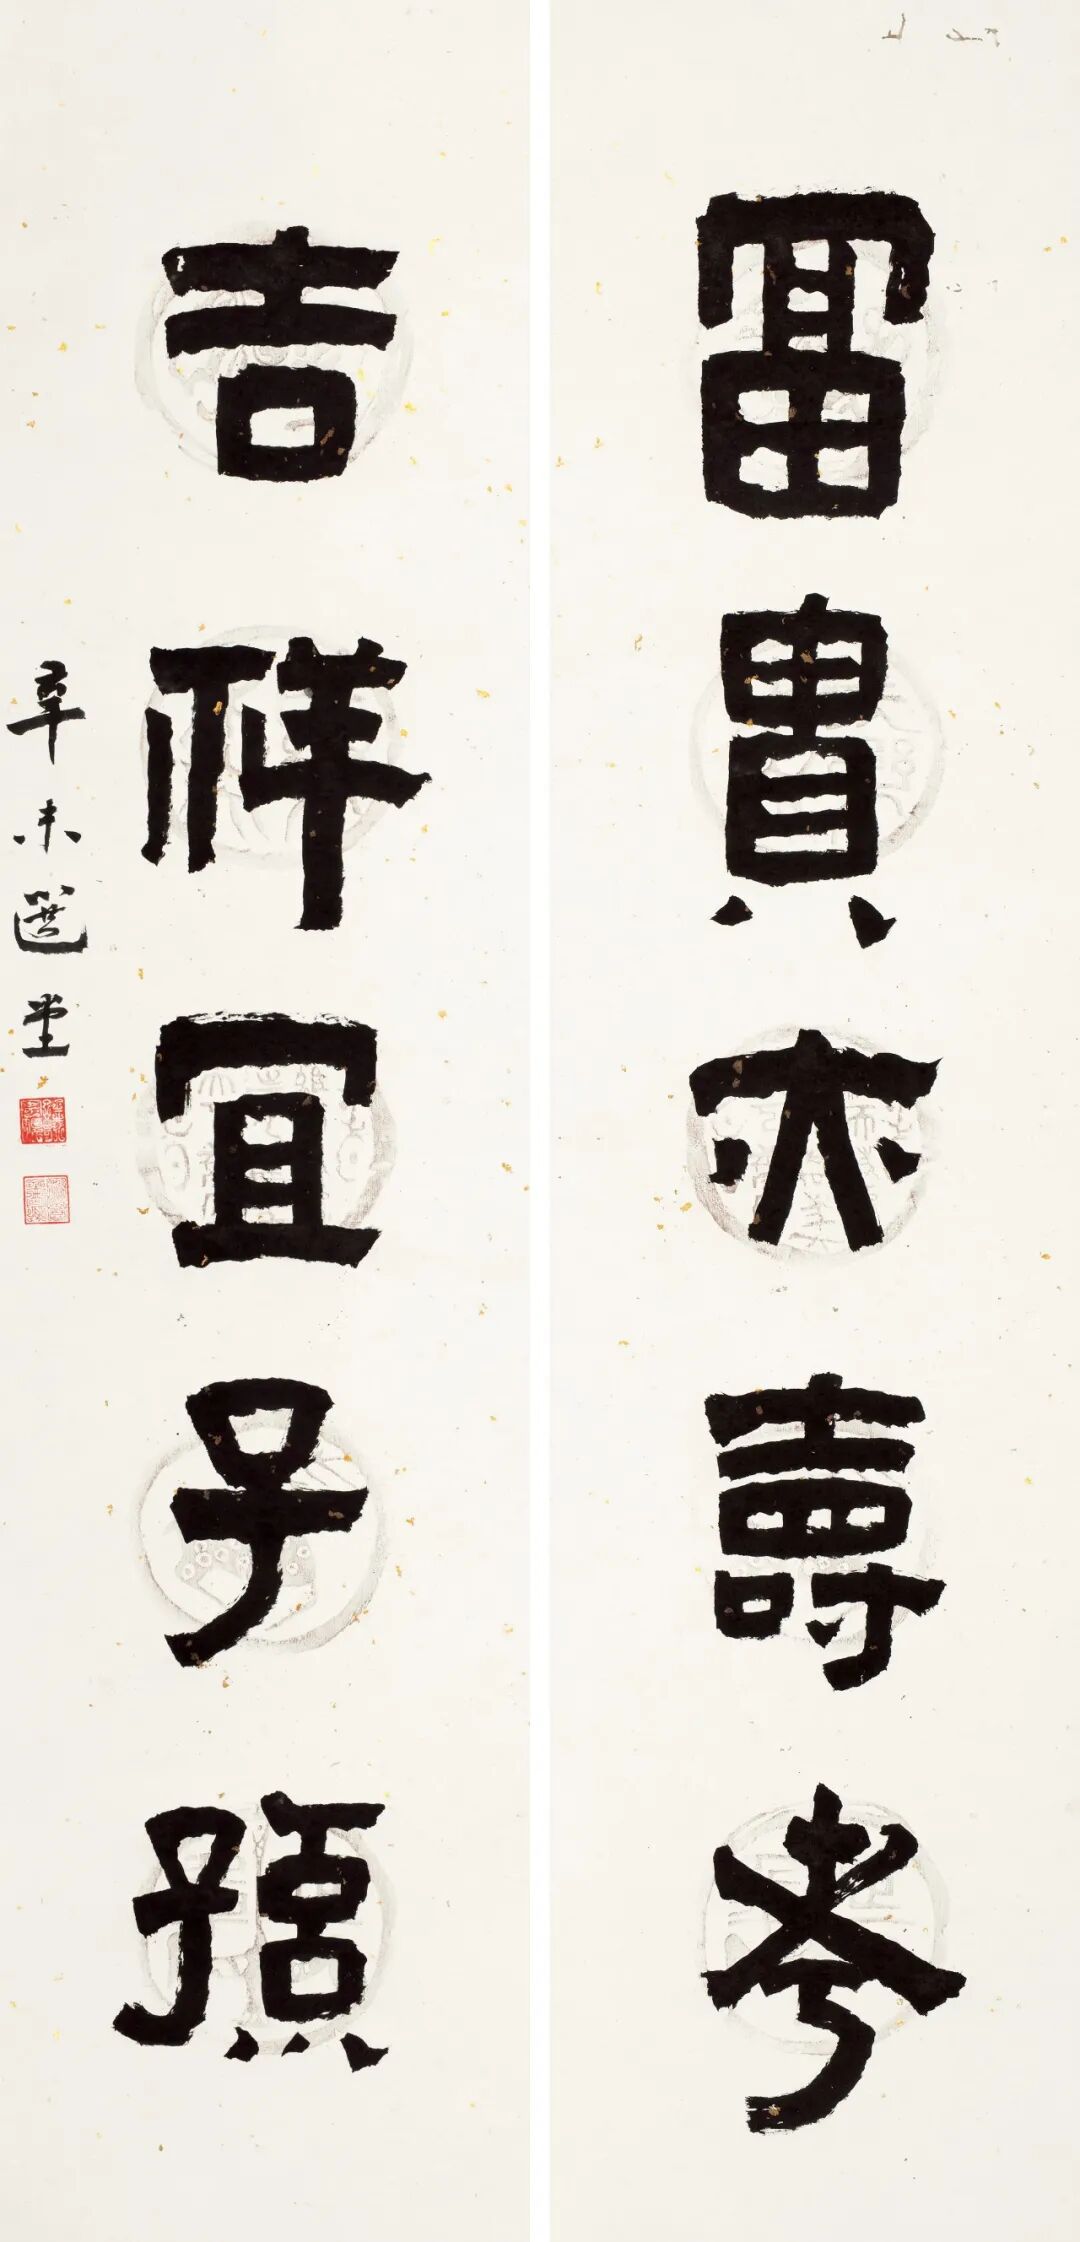 富貴亦壽考
吉祥宜子孫
辛未選堂